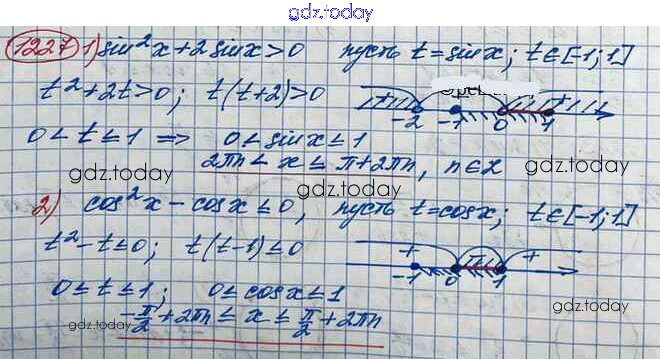 gdz.today
1227 1) sin²x + 2 sinx > 0 пусть t = sinx; t ∈ [-1; 1]
t² + 2t > 0; t(t+2) > 0
+ -2 -1 0 + 1
0 < t ≤ 1 => 0 < sinx ≤ 1
gdz.today gdz.today
2πn < x ≤ π + 2πn, n ∈ Z
gdz.today
2) cos²x - cosx ≤ 0, пусть t = cosx; t ∈ [-1; 1]
t² - t ≤ 0; t(t-1) ≤ 0
+ -1 0 1 +
0 ≤ t ≤ 1; 0 ≤ cosx ≤ 1
-π/2 + 2πn ≤ x ≤ π/2 + 2πn
gdz.today gdz.today gdz.today